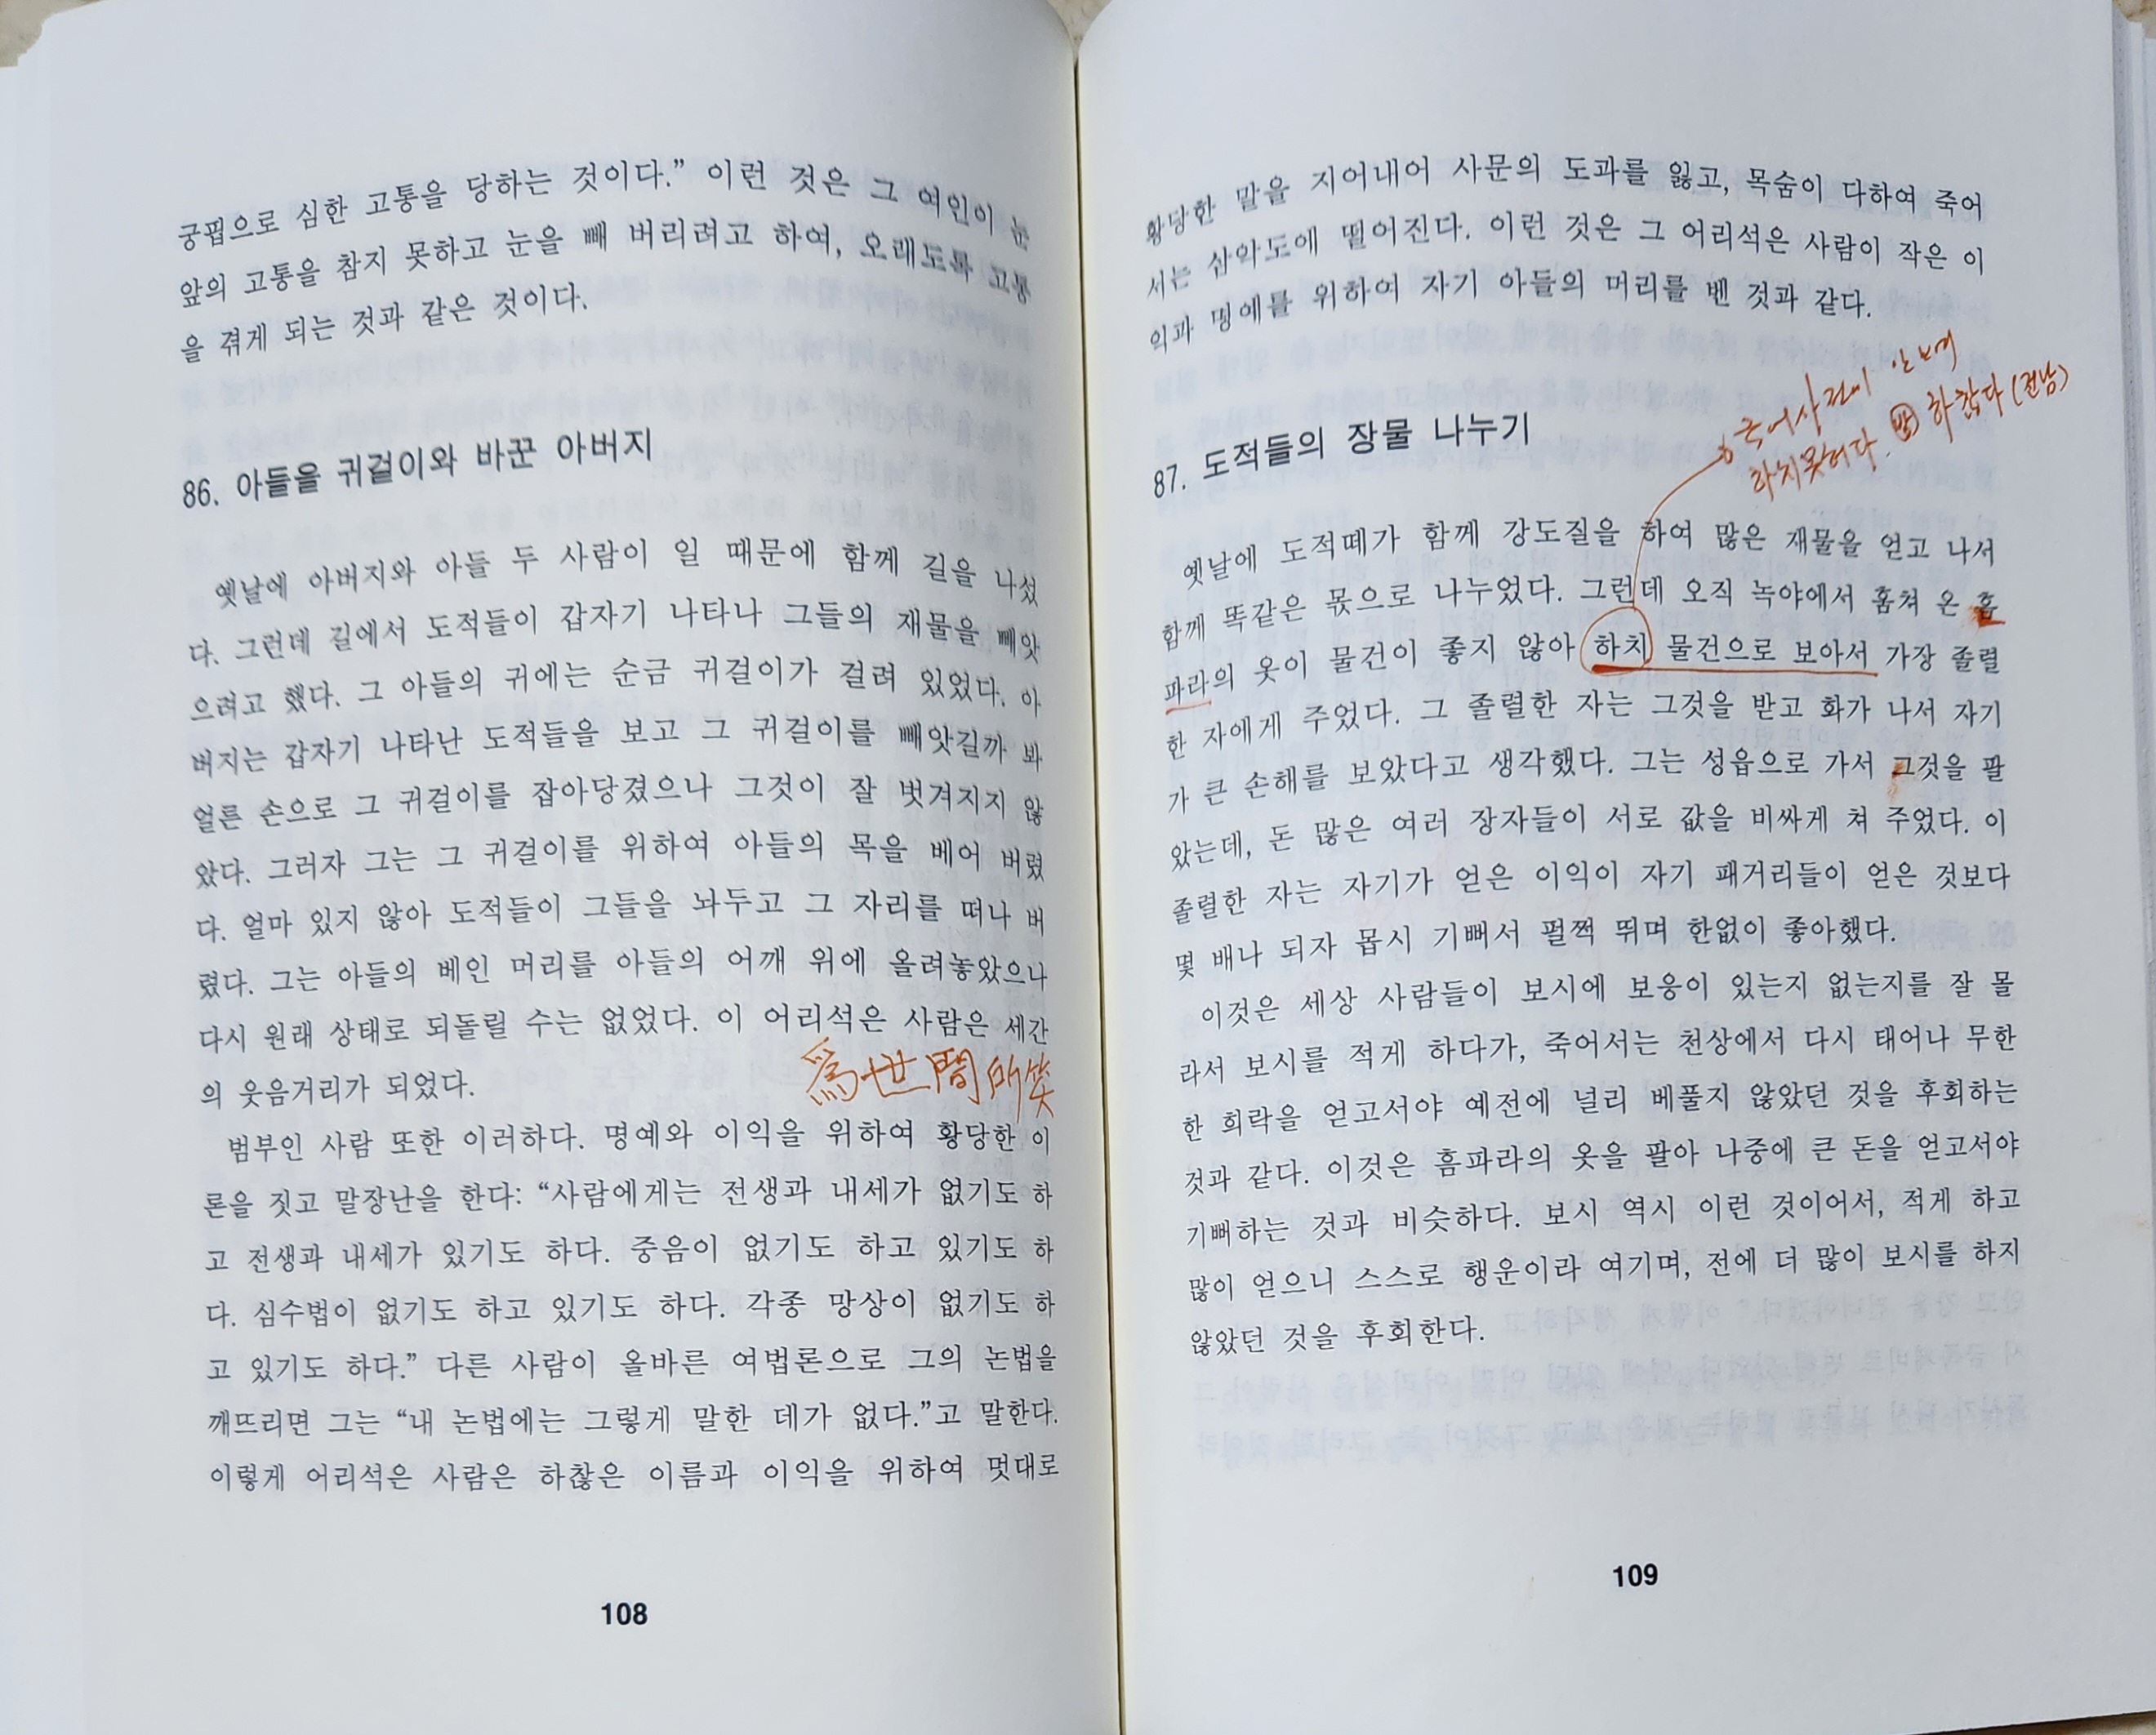 궁핍으로 심한 고통을 당하는 것이다.” 이런 것은 그 여인이 눈
앞의 고통을 참지 못하고 눈을 빼 버리려고 하여, 오래도록 고통
을 겪게 되는 것과 같은 것이다.
86. 아들을 귀걸이와 바꾼 아버지
옛날에 아버지와 아들 두 사람이 일 때문에 함께 길을 나섰
다. 그런데 길에서 도적들이 갑자기 나타나 그들의 재물을 빼앗
으려고 했다. 그 아들의 귀에는 순금 귀걸이가 걸려 있었다. 아
버지는 갑자기 나타난 도적들을 보고 그 귀걸이를 빼앗길까 봐
얼른 손으로 그 귀걸이를 잡아당겼으나 그것이 잘 벗겨지지 않
았다. 그러자 그는 그 귀걸이를 위하여 아들의 목을 베어 버렸
다. 얼마 있지 않아 도적들이 그들을 놔두고 그 자리를 떠나 버
렸다. 그는 아들의 베인 머리를 아들의 어깨 위에 올려놓았으나
다시 원래 상태로 되돌릴 수는 없었다. 이 어리석은 사람은 세간
의 웃음거리가 되었다.
爲世間所笑
범부인 사람 또한 이러하다. 명예와 이익을 위하여 황당한 이
론을 짓고 말장난을 한다: “사람에게는 전생과 내세가 없기도 하
고 전생과 내세가 있기도 하다. 중음이 없기도 하고 있기도 하
다. 심수법이 없기도 하고 있기도 하다. 각종 망상이 없기도 하
고 있기도 하다.” 다른 사람이 올바른 여법론으로 그의 논법을
깨뜨리면 그는 “내 논법에는 그렇게 말한 데가 없다.”고 말한다.
이렇게 어리석은 사람은 하찮은 이름과 이익을 위하여 멋대로
108
황당한 말을 지어내어 사문의 도과를 잃고, 목숨이 다하여 죽어
서는 삼악도에 떨어진다. 이런 것은 그 어리석은 사람이 작은 이
익과 명예를 위하여 자기 아들의 머리를 벤 것과 같다.
87. 도적들의 장물 나누기
국어사전에
하찮다 (전남)
옛날에 도적떼가 함께 강도질을 하여 많은 재물을 얻고 나서
함께 똑같은 몫으로 나누었다. 그런데 오직 녹야에서 훔쳐 온 흠
파라의 옷이 물건이 좋지 않아 하치 물건으로 보아서 가장 졸렬
한 자에게 주었다. 그 졸렬한 자는 그것을 받고 화가 나서 자기
가 큰 손해를 보았다고 생각했다. 그는 성읍으로 가서 그것을 팔
았는데, 돈 많은 여러 장자들이 서로 값을 비싸게 쳐 주었다. 이
졸렬한 자는 자기가 얻은 이익이 자기 패거리들이 얻은 것보다
몇 배나 되자 몹시 기뻐서 펄쩍 뛰며 한없이 좋아했다.
이것은 세상 사람들이 보시에 보응이 있는지 없는지를 잘 몰
라서 보시를 적게 하다가, 죽어서는 천상에서 다시 태어나 무한
한 희락을 얻고서야 예전에 널리 베풀지 않았던 것을 후회하는
것과 같다. 이것은 흠파라의 옷을 팔아 나중에 큰 돈을 얻고서야
기뻐하는 것과 비슷하다. 보시 역시 이런 것이어서, 적게 하고
많이 얻으니 스스로 행운이라 여기며, 전에 더 많이 보시를 하지
않았던 것을 후회한다.
109